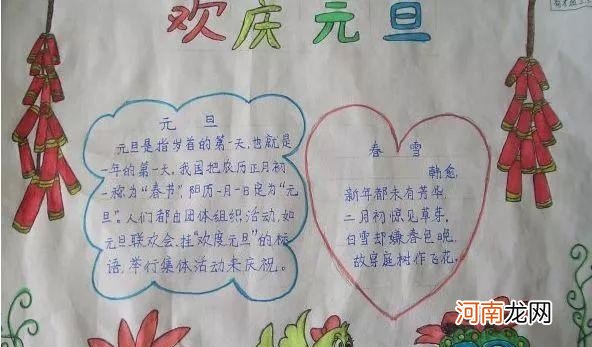 欢庆元旦
元旦
元旦是指岁首的第一天,也就是
一年的第一天。我国把农历正月初
一称为“春节”,阳历一月一日定为“元
旦”。人们都由团体组织活动,如
元旦联欢会、挂“欢度元旦”的标
语,举行集体活动来庆祝。
春雪
韩愈
新年都未有芳华,
二月初惊见草芽。
白雪却嫌春色晚,
故穿庭树作飞花。
河南龙网